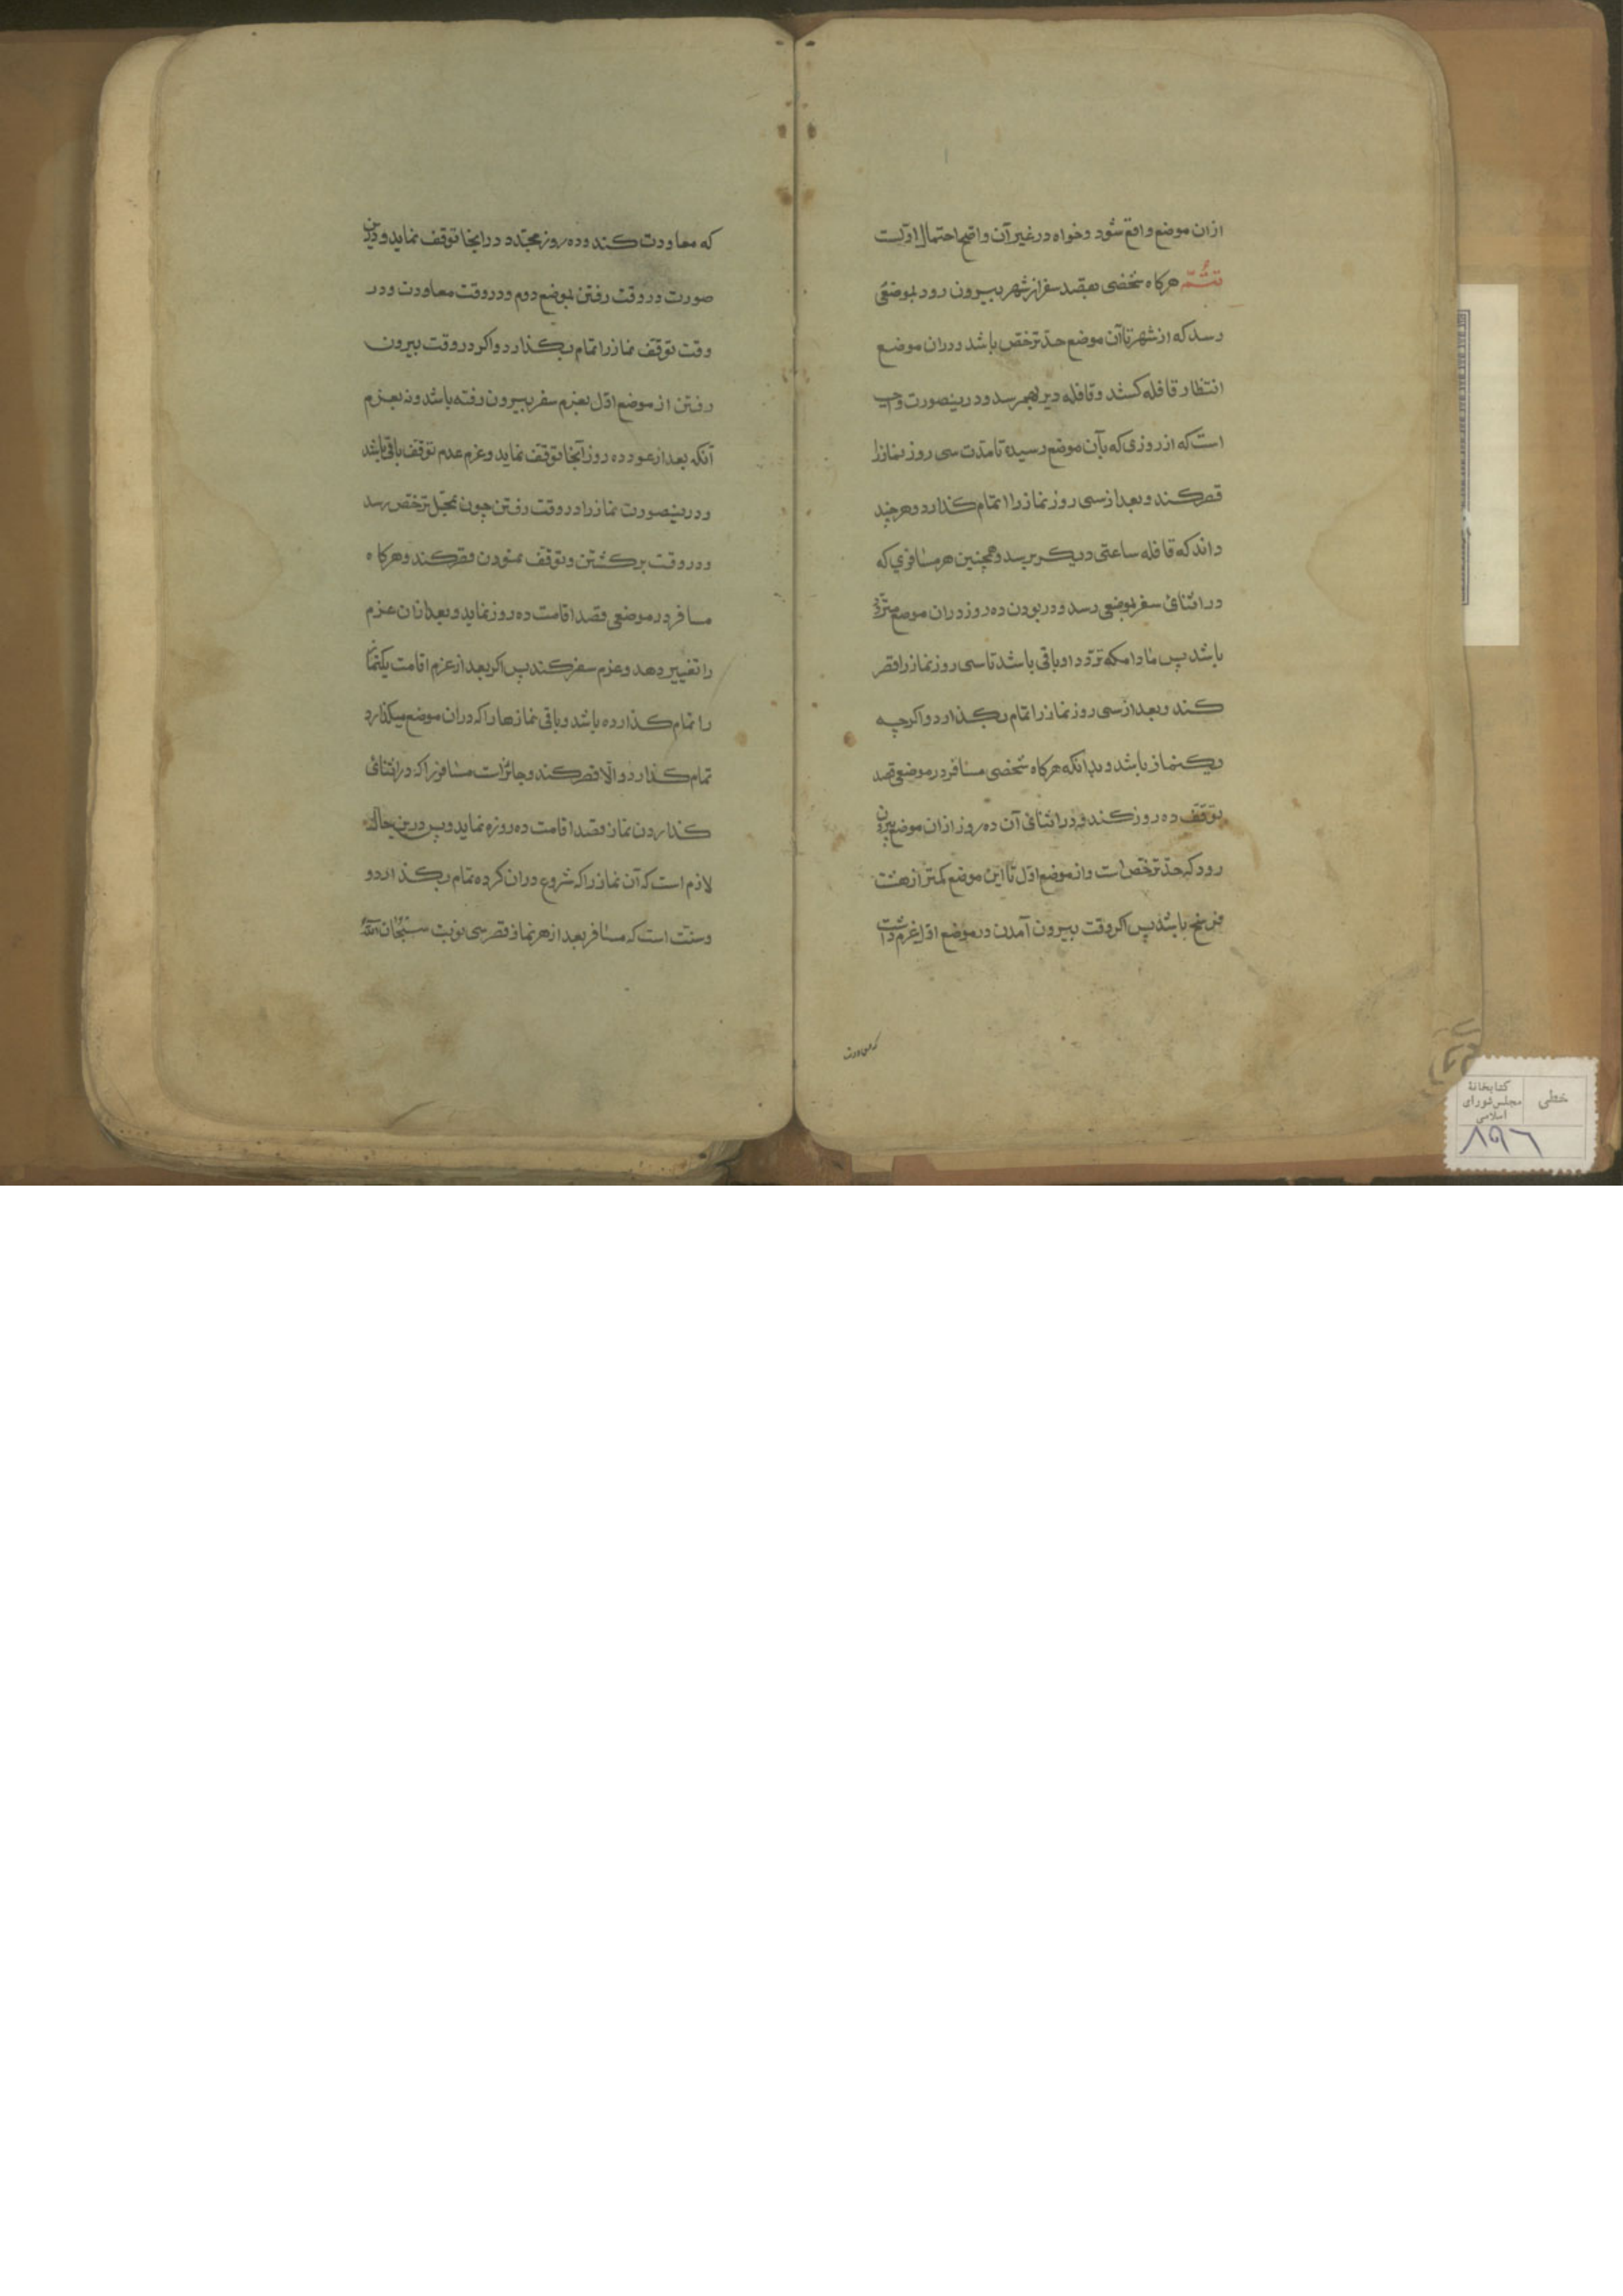 ازان موضع واقع شود وخواه در غیر آن واضح احتمال اولست
تتمّه هرکاه شخصی بقصد سفر از شهر بیرون رود بموضعی
رسد که از شهر تا آن موضع حدّ ترخّص باشد ودران موضع
انتظار قافله کشد وقافله دیر بهم رسد ودرینصورت واجب
است که از روزی که بآن موضع رسیده تا مدّت سی روز نماز را
قصر کند وبعد از سی روز نماز را اتمام کذارد وهر چند
داند که قافله ساعتی دیکر برسد وهمچنین هر مسافری که
در اثنائی سفر بموضعی رسد ودر بودن ده روز دران موضع متردّد
باشد پس مادامکه تردّد او باقی باشد تا سی روز نماز را قصر
کند وبعد از سی روز نماز را تمام بکذارد واکرچه
یکنماز باشد وبدانکه هرکاه شخصی مسافر در موضعی قصد
توقّف ده روز کند ودر اثنائی آن ده روز ازان موضع بیرون
رود که حدّ ترخّص است واز موضع اوّل تا این موضع کمتر از هشت
فرسخ باشد پس اکر وقت بیرون آمدن در موضع اوّل عزم داشت
که معاودت
که معاودت کند وده روز مجدّد در اینجا توقّف نماید ودرین
صورت در وقت رفتن بموضع دوم ودر وقت معاودت ودر
وقت توقّف نماز را تمام بکذارد واکر در وقت بیرون
رفتن از موضع اوّل بعزم سفر بیرون رفته باشد ونه بعزم
آنکه بعد از عود ده روز آنجا توقّف نماید وعزم عدم توقّف باقی باشد
ودرینصورت نماز را در وقت رفتن چون بمحلّ ترخّص رسد
ودر وقت برکشتن وتوقّف نمودن قصر کند وهرکاه
مسافر در موضعی قصد اقامت ده روز نماید وبعد ازان عزم
را تغییر دهد وعزم سفر کند پس اکر بعد از عزم اقامت یکنماز
را تمام کذارده باشد وباقی نمازها را که دران موضع میکذارد
تمام کذارد والّا قصر کند وجائز است مسافر را که در اثنائی
کذاردن نماز قصد اقامت ده روزه نماید وپس درین حال
لازم است که آن نماز را که شروع دران کرده تمام بکذارد و
وسنّت است که مسافر بعد از هر نماز قصر سی نوبت سبحان الله
خطی
کتابخانهٔ
مجلس شورای
اسلامی
۸۹۶